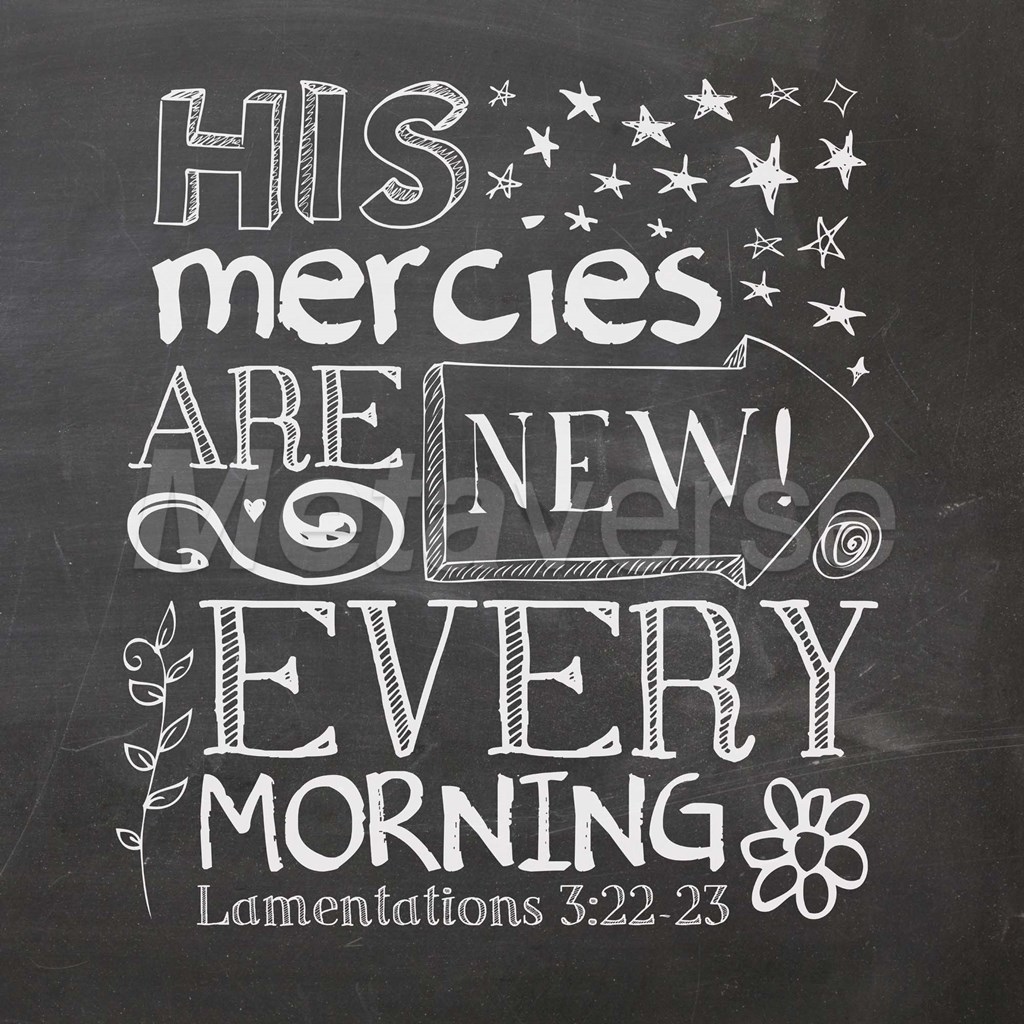 HIS
mercies
ARE NEW!
EVERY
MORNING
Lamentations 3:22-23
Metaverse